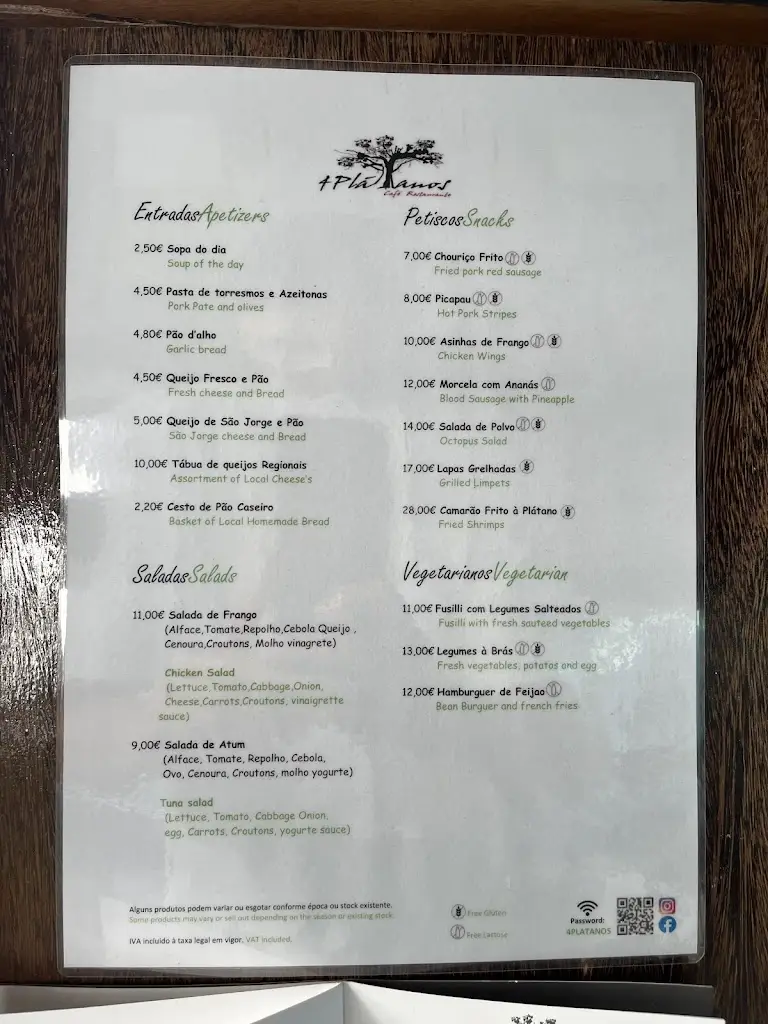 4Plátanos
Café Restaurante
EntradasApetizers
2,50€ Sopa do dia
Soup of the day
4,50€ Pasta de torresmos e Azeitonas
Pork Pate and olives
4,80€ Pão d'alho
Garlic bread
4,50€ Queijo Fresco e Pão
Fresh cheese and Bread
5,00€ Queijo de São Jorge e Pão
São Jorge cheese and Bread
10,00€ Tábua de queijos Regionais
Assortment of Local Cheese's
2,20€ Cesto de Pão Caseiro
Basket of Local Homemade Bread
SaladasSalads
11,00€ Salada de Frango
(Alface,Tomate,Repolho,Cebola Queijo ,
Cenoura,Croutons, Molho vinagrete)
Chicken Salad
(Lettuce,Tomato,Cabbage,Onion,
Cheese,Carrots,Croutons, vinaigrette
sauce)
9,00€ Salada de Atum
(Alface, Tomate, Repolho, Cebola,
Ovo, Cenoura, Croutons, molho yogurte)
Tuna salad
(Lettuce, Tomato, Cabbage Onion,
egg, Carrots, Croutons, yogurte sauce)
PetiscosSnacks
7,00€ Chouriço Frito
Fried pork red sausage
8,00€ Picapau
Hot Pork Stripes
10,00€ Asinhas de Frango
Chicken Wings
12,00€ Morcela com Ananás
Blood Sausage with Pineapple
14,00€ Salada de Polvo
Octopus Salad
17,00€ Lapas Grelhadas
Grilled Limpets
28,00€ Camarão Frito à Plátano
Fried Shrimps
VegetarianosVegetarian
11,00€ Fusilli com Legumes Salteados
Fusilli with fresh sauteed vegetables
13,00€ Legumes à Brás
Fresh vegetables, potatos and egg
12,00€ Hamburguer de Feijao
Bean Burguer and french fries
Alguns produtos podem variar ou esgotar conforme época ou stock existente.
Some products may vary or sell out depending on the season or existing stock.
IVA incluido à taxa legal em vigor. VAT included.
Free Gluten
Free Lactose
Password:
4PLATANOS